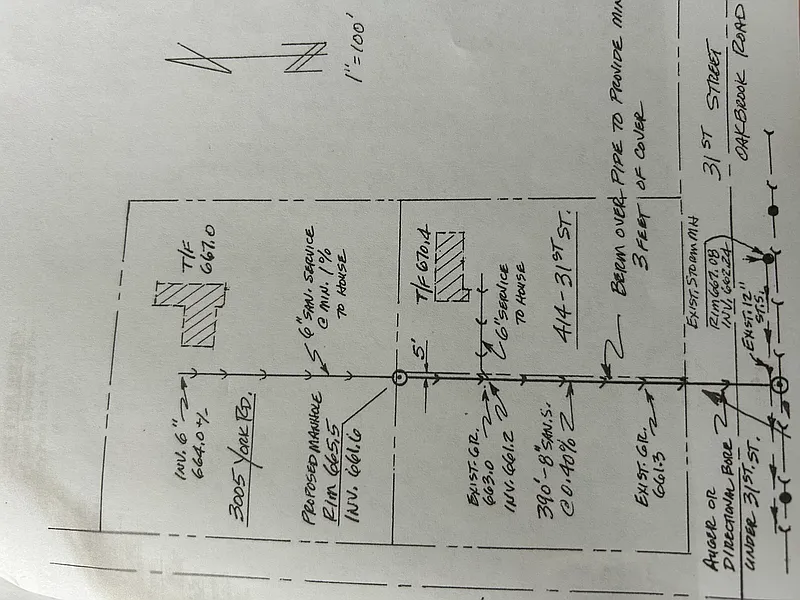 1"=100'
T/F
667.0
6" SAN. SERVICE
@ MIN. 1%
TO HOUSE
INV. 6"
664.0 +/-
3005 YORK RD.
PROPOSED MANHOLE
RIM 665.5
INV. 661.6
T/F 670.4
5'
6" SERVICE
TO HOUSE
414 - 31ST ST.
EXIST. GR.
663.0
INV. 661.2
390' - 8" SAN. S.
@ 0.40%
BERM OVER PIPE TO PROVIDE MIN
3 FEET OF COVER
EXIST. GR.
661.3
EXIST. STORM MH
RIM 667.08
INV. 662.24
EXIST. 12"
ST. S.
31ST STREET
OAKBROOK ROAD
AUGER OR
DIRECTIONAL BORE
UNDER 31ST. ST.